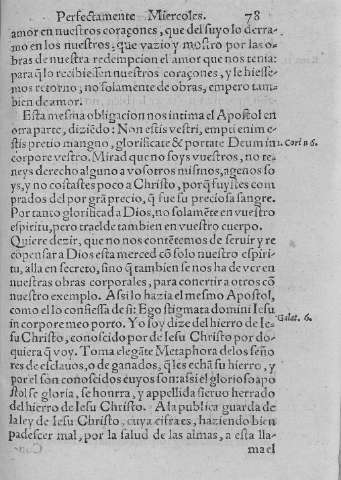 Perfectamente Miercoles. 78
amor en nuestros coraçones, que del suyo lo derra-
mo en los nuestros: que vazio y mostro por las o-
bras de nuestra redempcion el amor que nos tenia:
para q̃ lo recibiessẽ en nuestros coraçones, y le hiesse-
mos retorno, no solamente de obras, empero tam-
bien de amor.
Esta mesma obligacion nos intima el Apostol en
otra parte, diziẽdo: Non estis vestri, empti enim e-
stis pretio mangno, glorificate & portate Deum in
1. Cori n 6.
corpore vestro. Mirad que no soys vuestros, no te-
neys derecho alguno a vosotros mismos, agenos so
ys, y no costastes poco a Christo, porq̃ fuystes com
prados del por grã precio, q̃ fue su preciosa sangre.
Por tanto glorificad a Dios, no solamẽte en vuestro
espiritu, pero traelde tambien en vuestro cuerpo.
Quiere dezir, que no nos contẽtemos de seruir y re
copensar a Dios esta merced cõ solo nuestro espiri-
tu, alla en secreto, sino q̃ tambien se nos ha de ver en
nuestras obras corporales, para conertir a otros cõ
nuestro exemplo. Assi lo hazia el mesmo Apostol,
como el lo confiessa de si: Ego stigmata domini Iesu
Galat. 6.
in corpore meo porto. Yo soy dize del hierro de Ie-
su Christo, conoscido por de Iesu Christo por do-
quiera q̃ voy. Toma elegãte Metaphora de los seño
res de esclauos, o de ganados, q̃ les echã su hierro, y
por el son conoscidos cuyos son: assi el glorioso apo
stol se gloria, se honrra, y appellida sieruo herrado
del hierro de Iesu Christo. A la publica guarda de
la ley de Iesu Christo, cuya cifra es, haziendo bien
padescer mal, por la salud de las almas, a esta lla-
ma el